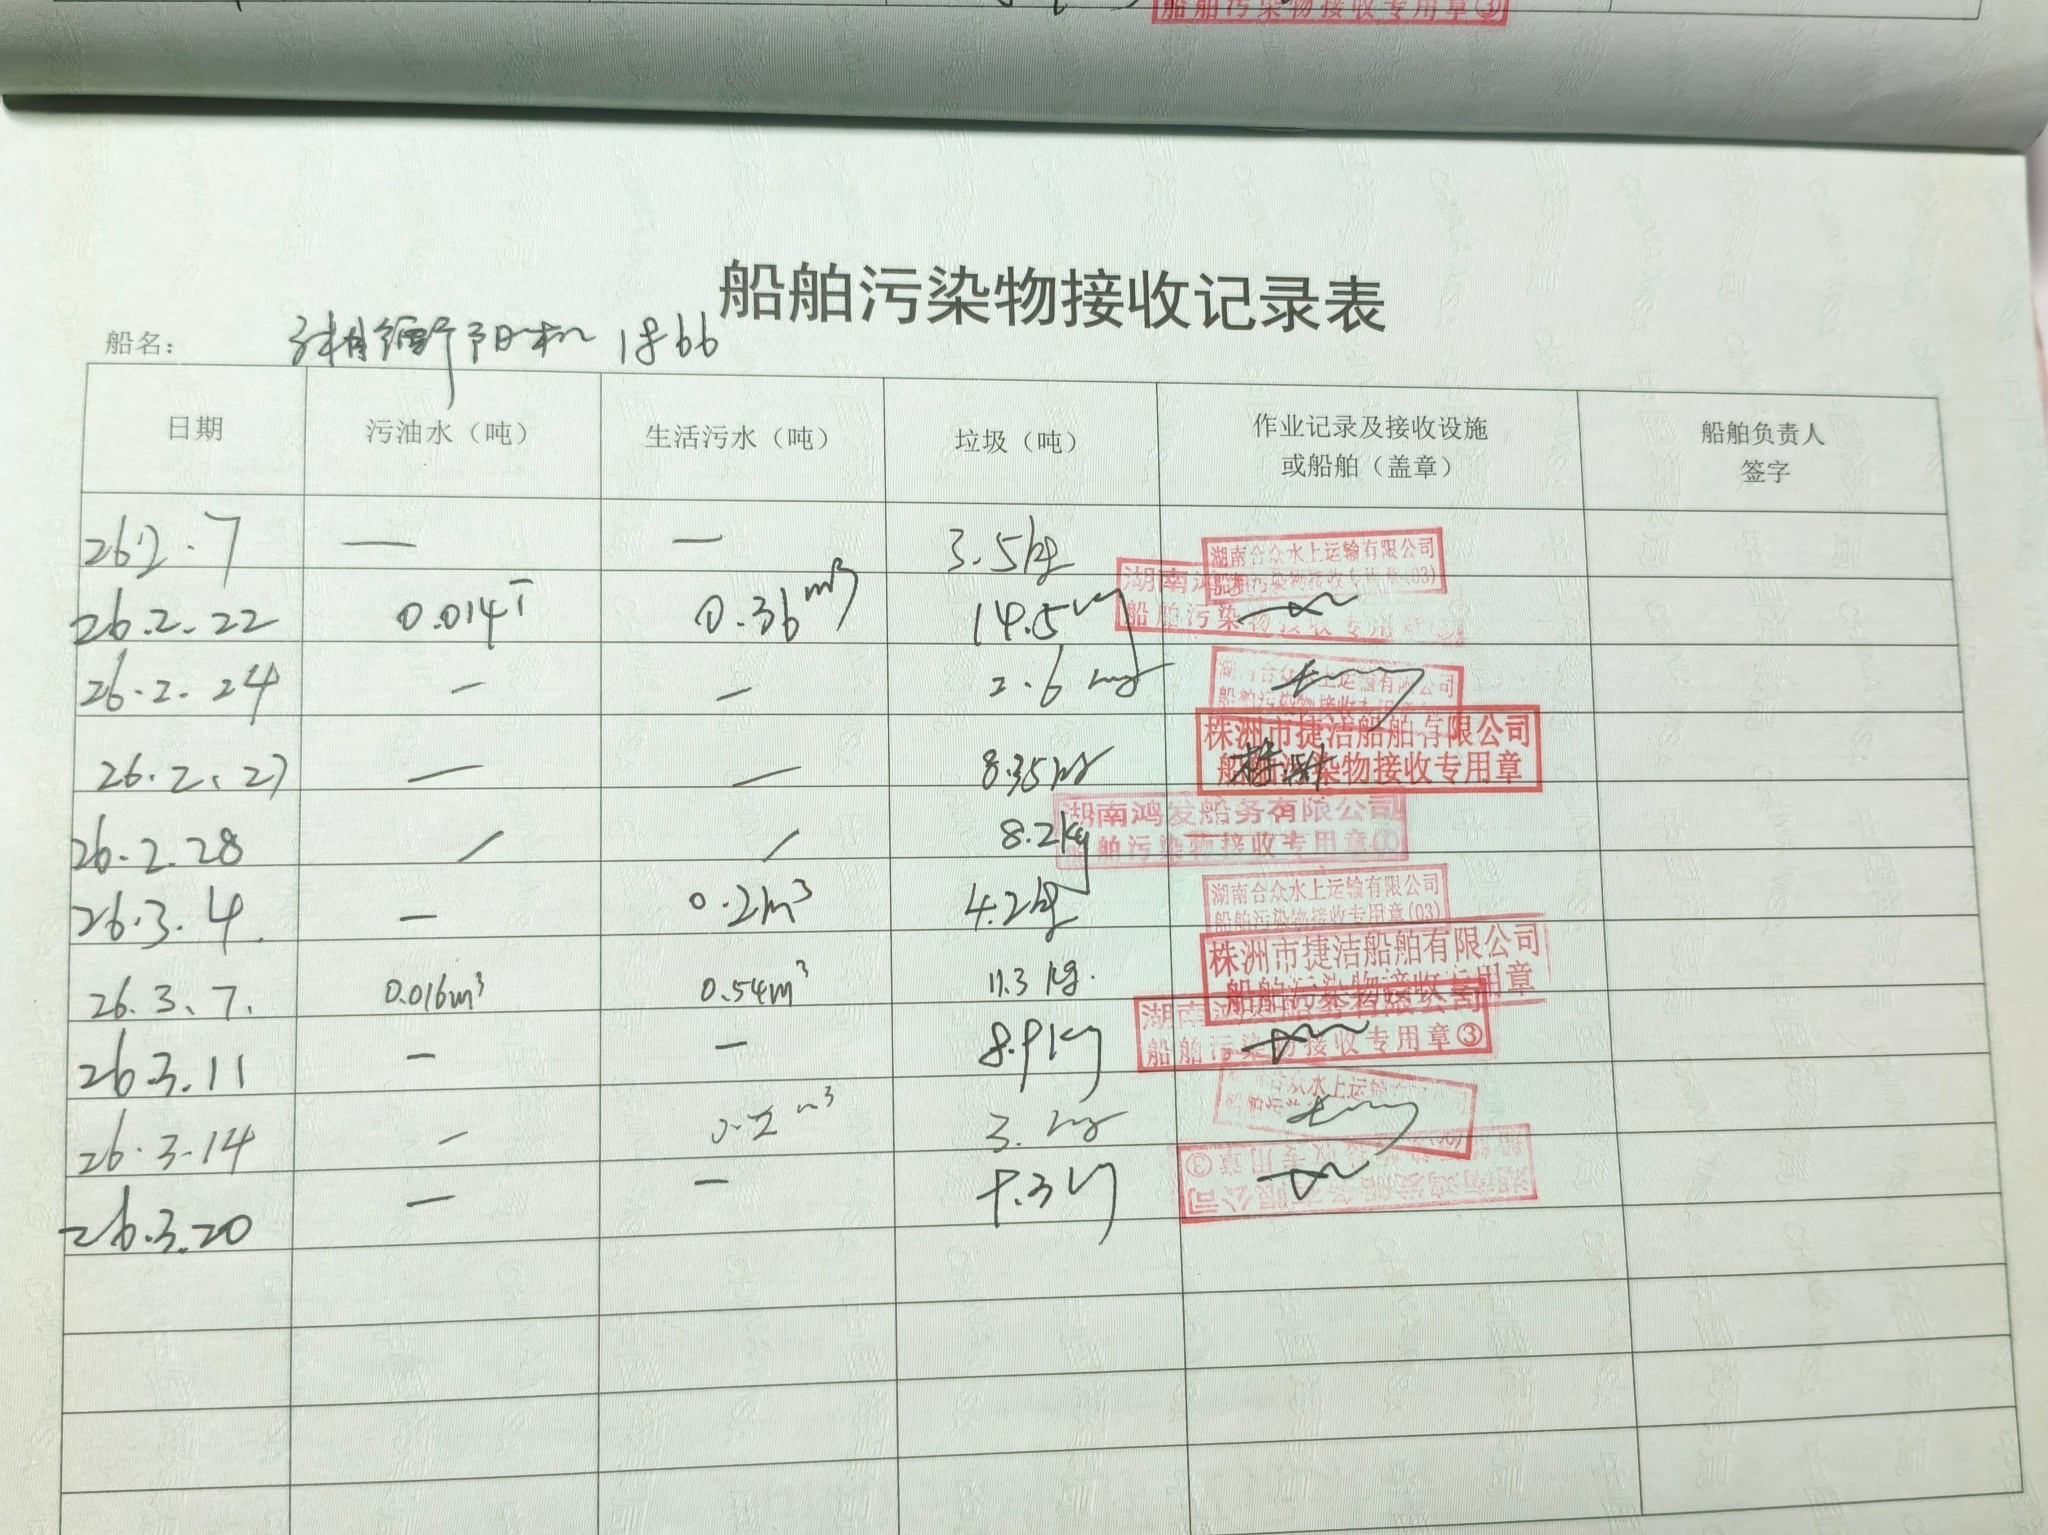 船舶污染物接收专用章③
船舶污染物接收记录表
船名： 机 1866
日期 污油水（吨） 生活污水（吨） 垃圾（吨） 作业记录及接收设施或船舶（盖章） 船舶负责人签字
26.2.7 — — 3.5kg 湖南合众水上运输有限公司 船舶污染物接收专用章(03)
26.2.22 0.014T 0.36m³ 14.5kg 湖南 船舶污染物接收专用章
26.2.24 — — 2.6kg 湖南合众水上运输有限公司 船舶污染物接收专用章
26.2.27 — — 8.35kg 株洲市捷洁船舶有限公司 船舶污染物接收专用章 株洲
26.2.28 / / 8.2kg 湖南鸿发船务有限公司 船舶污染物接收专用章①
26.3.4 — 0.2m³ 4.2kg 湖南合众水上运输有限公司 船舶污染物接收专用章(03)
26.3.7. 0.016m³ 0.54m³ 11.3kg. 株洲市捷洁船舶有限公司 船舶污染物接收专用章
26.3.11 — — 8.9kg 湖南 船舶污染物接收专用章③
26.3.14 — 0.2m³ 3.kg 合众水上运输
26.3.20 — — 9.3kg 湖南鸿发船务有限公司 船舶污染物接收专用章③